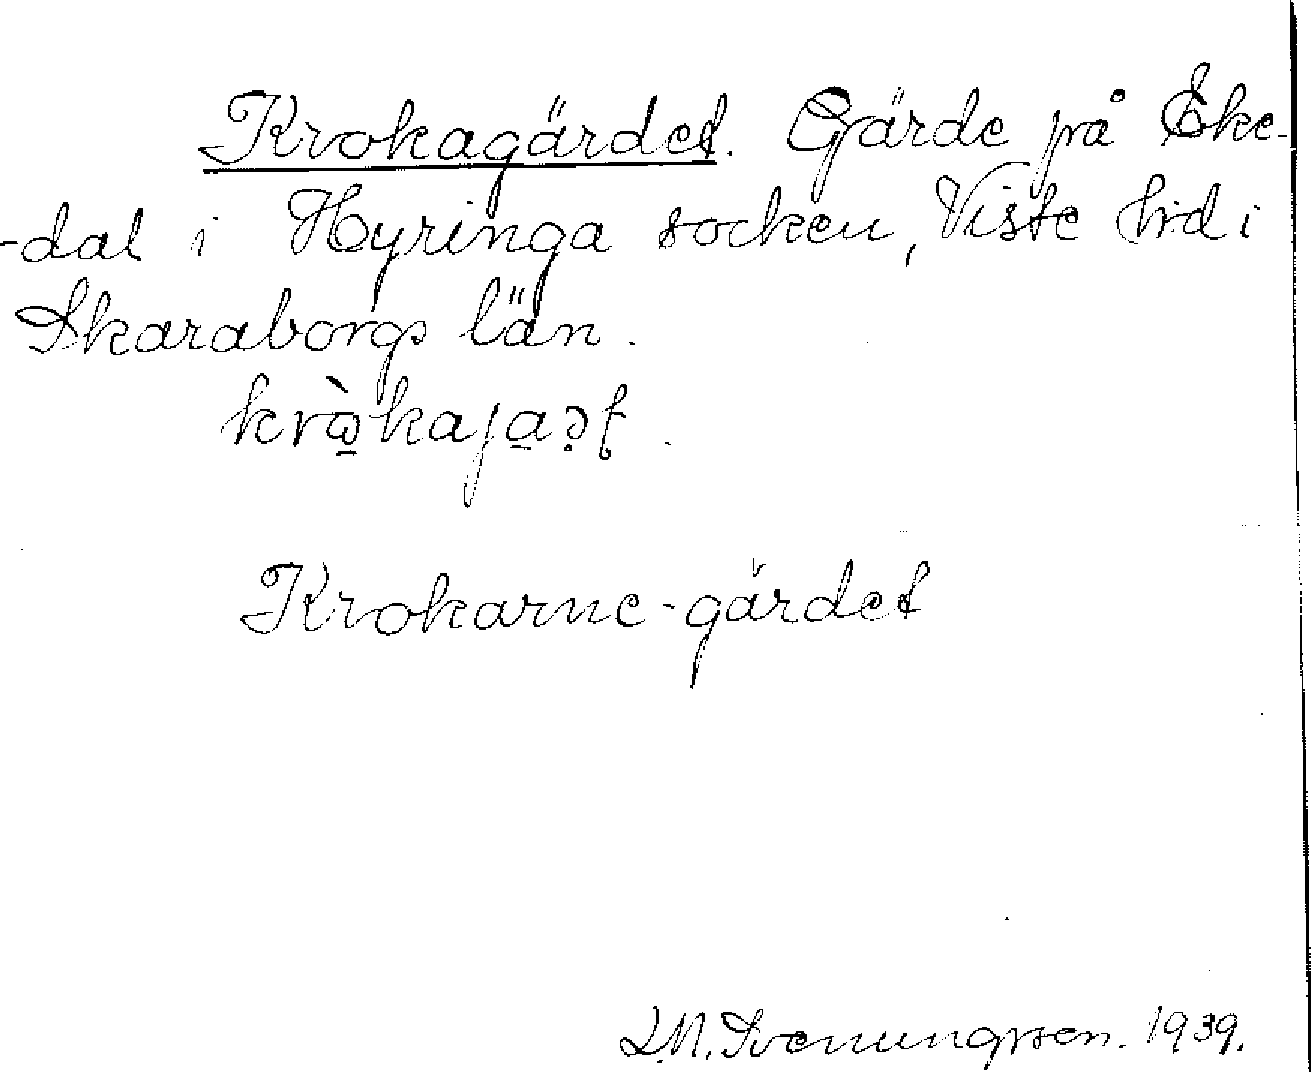 Krokagärdet. Gärde på Eke-
-dal i Hyringa socken, Viste hd i
Skaraborgs län.
Krokarne-gärdet
Svenungsson. 1939.